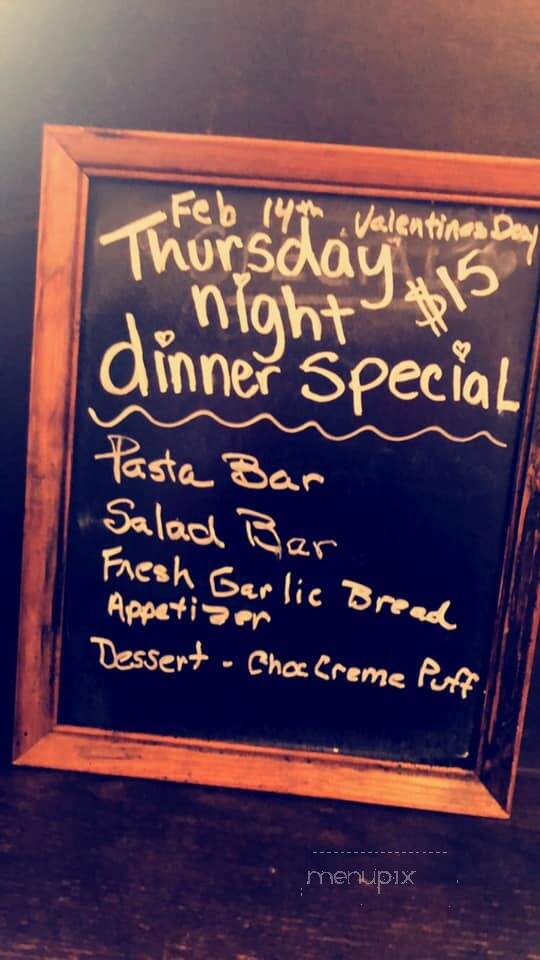 Feb 14th Valentines Day
Thursday
night $15
dinner special
Pasta Bar
Salad Bar
Fresh Garlic Bread
Appetizer
Dessert - Choc Creme Puff
menupix